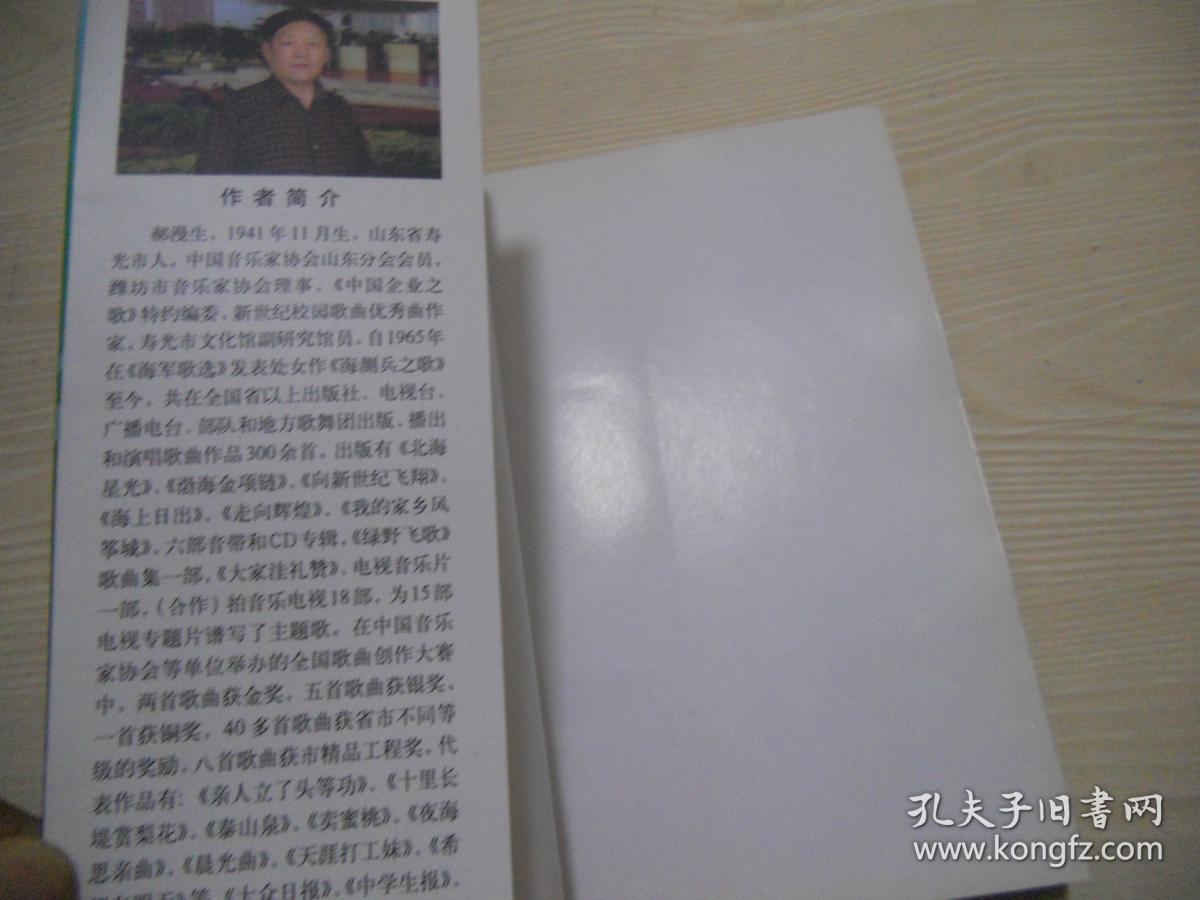 作者简介
郝漫生，1941年11月生，山东省寿
光市人，中国音乐家协会山东分会会员，
潍坊市音乐家协会理事，《中国企业之
歌》特约编委，新世纪校园歌曲优秀曲作
家，寿光市文化馆副研究馆员。自1965年
在《海军歌选》发表处女作《海测兵之歌》
至今，共在全国省以上出版社、电视台、
广播电台、部队和地方歌舞团出版、播出
和演唱歌曲作品300余首。出版有《北海
星光》、《渤海金项链》、《向新世纪飞翔》、
《海上日出》、《走向辉煌》、《我的家乡风
筝城》，六部音带和CD专辑，《绿野飞歌》
歌曲集一部，《大家洼礼赞》，电视音乐片
一部，(合作)拍音乐电视18部，为15部
电视专题片谱写了主题歌。在中国音乐
家协会等单位举办的全国歌曲创作大赛
中，两首歌曲获金奖，五首歌曲获银奖，
一首获铜奖，40多首歌曲获省市不同等
级的奖励，八首歌曲获市精品工程奖。代
表作品有：《亲人立了头等功》、《十里长
堤赏梨花》、《泰山泉》、《卖蜜桃》、《夜海
思亲曲》、《晨光曲》、《天涯打工妹》、《希
等《大众日报》、《中学生报》、
孔夫子旧书网
www.kongfz.com